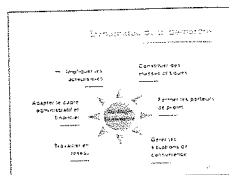 Dynamique de la démarche
Impliquer les
Constituer des
masses critiques
Adapter le cadre
administratif et
financier
Former les porteurs
de projet
Travailler en
réseau
Gérer les
situations de